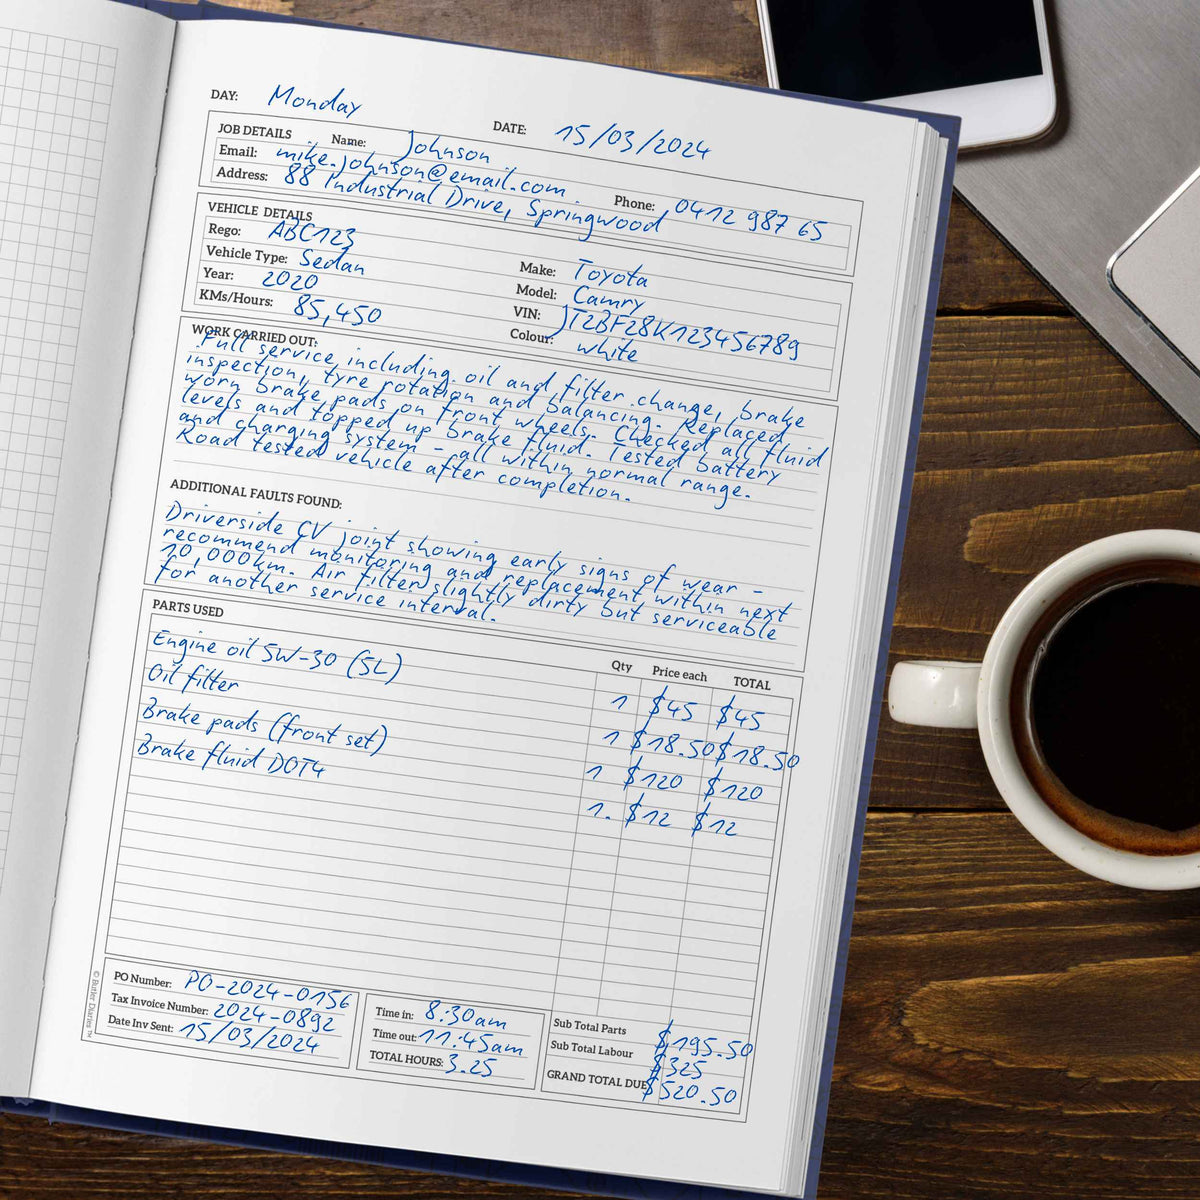 DAY: Monday
DATE: 15/03/2024
JOB DETAILS Name: Johnson
Email: mike.johnson@email.com
Phone: 0412 987 65
Address: 88 Industrial Drive, Springwood
VEHICLE DETAILS
Rego: ABC123
Vehicle Type: Sedan
Year: 2020
KMs/Hours: 85,450
Make: Toyota
Model: Camry
VIN: JT2BF28K123456789
Colour: white
WORK CARRIED OUT:
Full service including oil and filter change, brake
inspection, tyre rotation and balancing. Replaced
worn brake pads on front wheels. Checked all fluid
levels and topped up brake fluid. Tested battery
and charging system - all within normal range.
Road tested vehicle after completion.
ADDITIONAL FAULTS FOUND:
Driverside CV joint showing early signs of wear -
recommend monitoring and replacement within next
10,000km. Air filter slightly dirty but serviceable
for another service interval.
PARTS USED
Qty Price each TOTAL
Engine oil 5W-30 (5L) 1 $45 $45
Oil filter 1 $18.50 $18.50
Brake pads (front set) 1 $120 $120
Brake fluid DOT4 1. $12 $12
PO Number: PO-2024-0156
Tax Invoice Number: 2024-0892
Date Inv Sent: 15/03/2024
Time in: 8:30am
Time out: 11:45am
TOTAL HOURS: 3.25
Sub Total Parts $195.50
Sub Total Labour $325
GRAND TOTAL DUE $520.50
© Butler Diaries ™